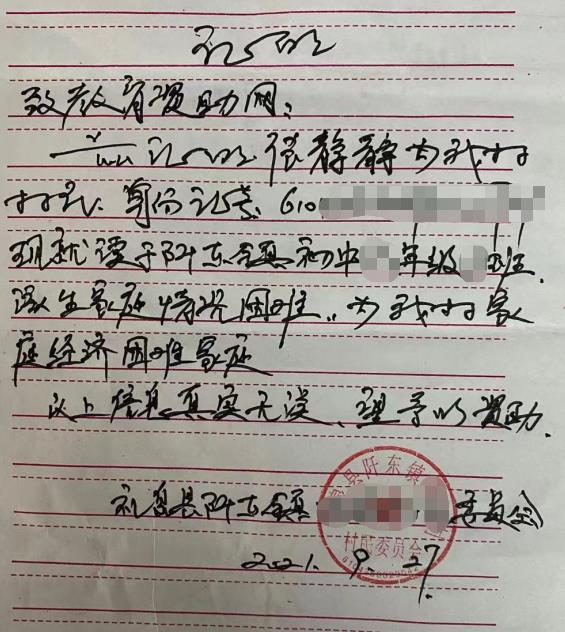 证明
致教育资助网:
兹证明张静静为我村
村民. 身份证号: 610
现就读于阡东镇初中 年级 班.
该生家庭情况困难, 为我村家
庭经济困难家庭
以上信息真实无误、望予以资助.
礼泉县阡东镇 委员会
县阡东镇
村民委员会
2021. 9. 27.